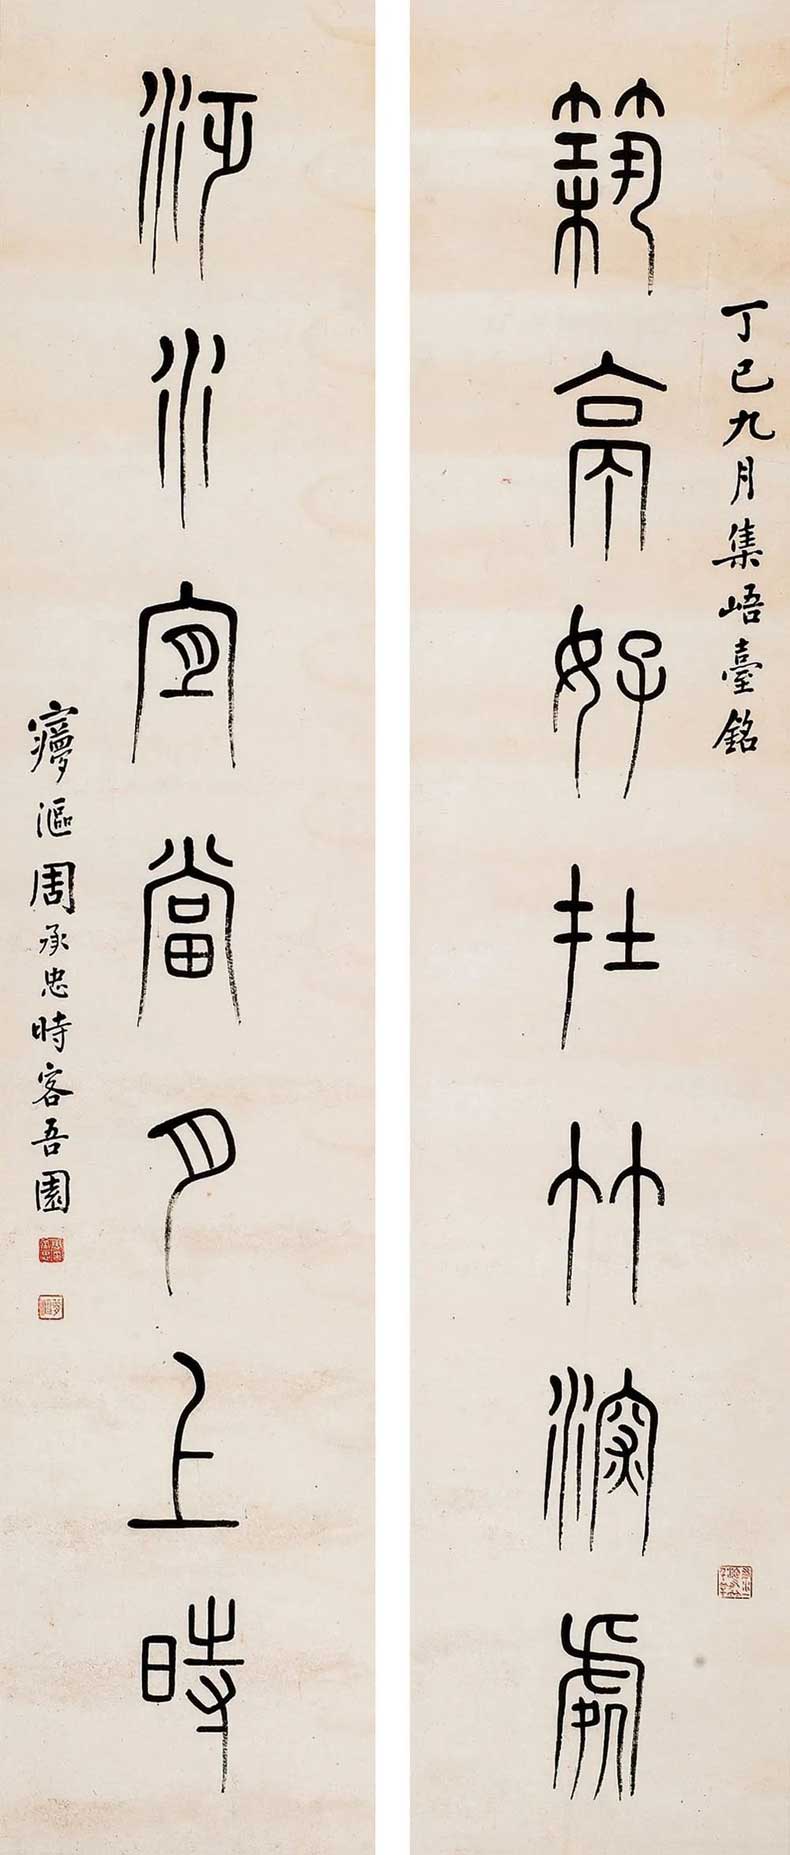 築亭好在竹深處
丁巳九月集峿臺銘
泛水宜當月上時
㝱漚周承忠時客吾園